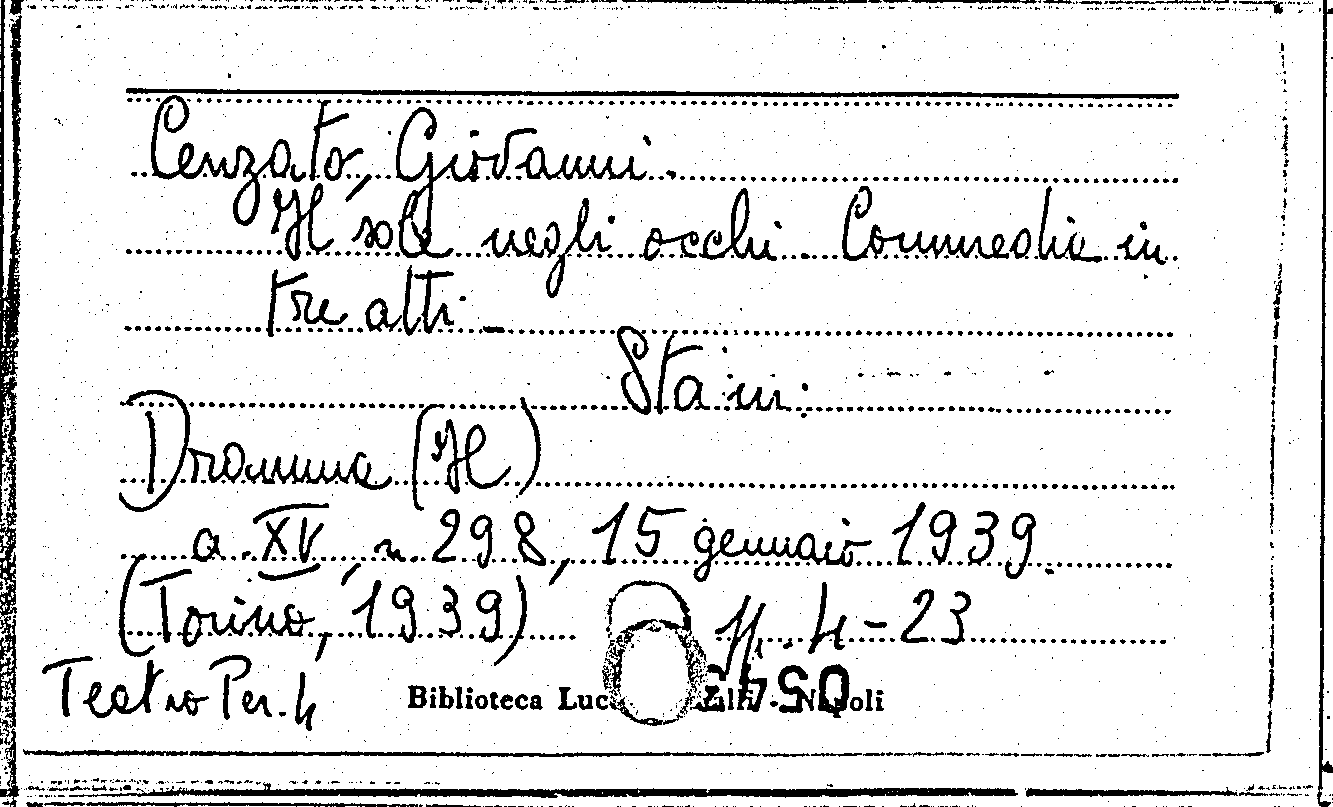 Cenzato, Giovanni.
Il sole negli occhi. Commedia in
tre atti. -
Sta in:
Dramma (Il)
a. XV, n. 298, 15 gennaio 1939.
(Torino, 1939) pp. 4-23
Teatro Per. 4
Biblioteca Napoli